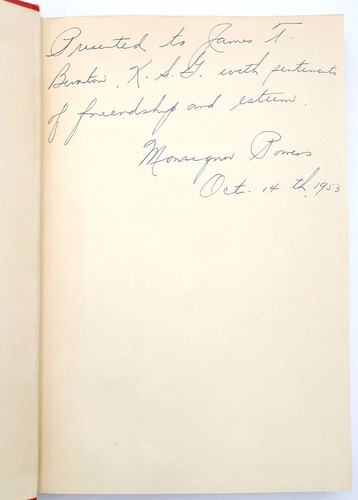 Presented to James T.
Burton, K. S. G. with sentiments
of friendship and esteem.
Monsignor Powers
Oct. 14 th, 1953